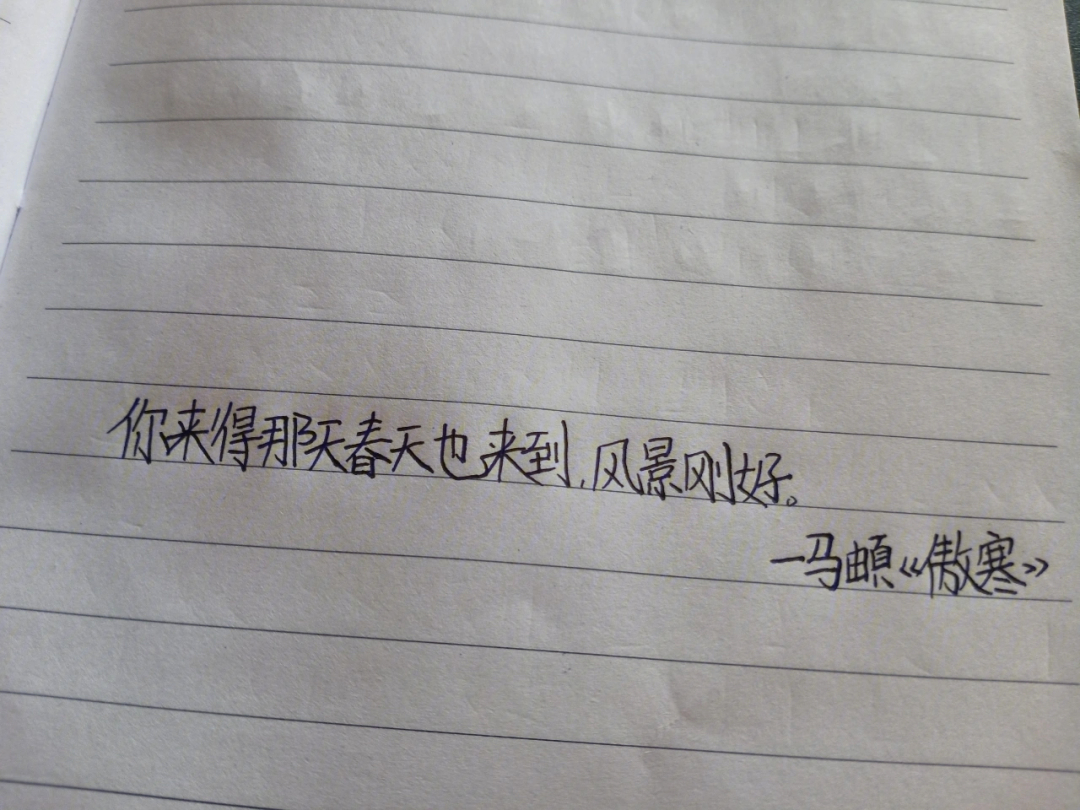 你来得那天春天也来到,风景刚好。
—马頔《傲寒》